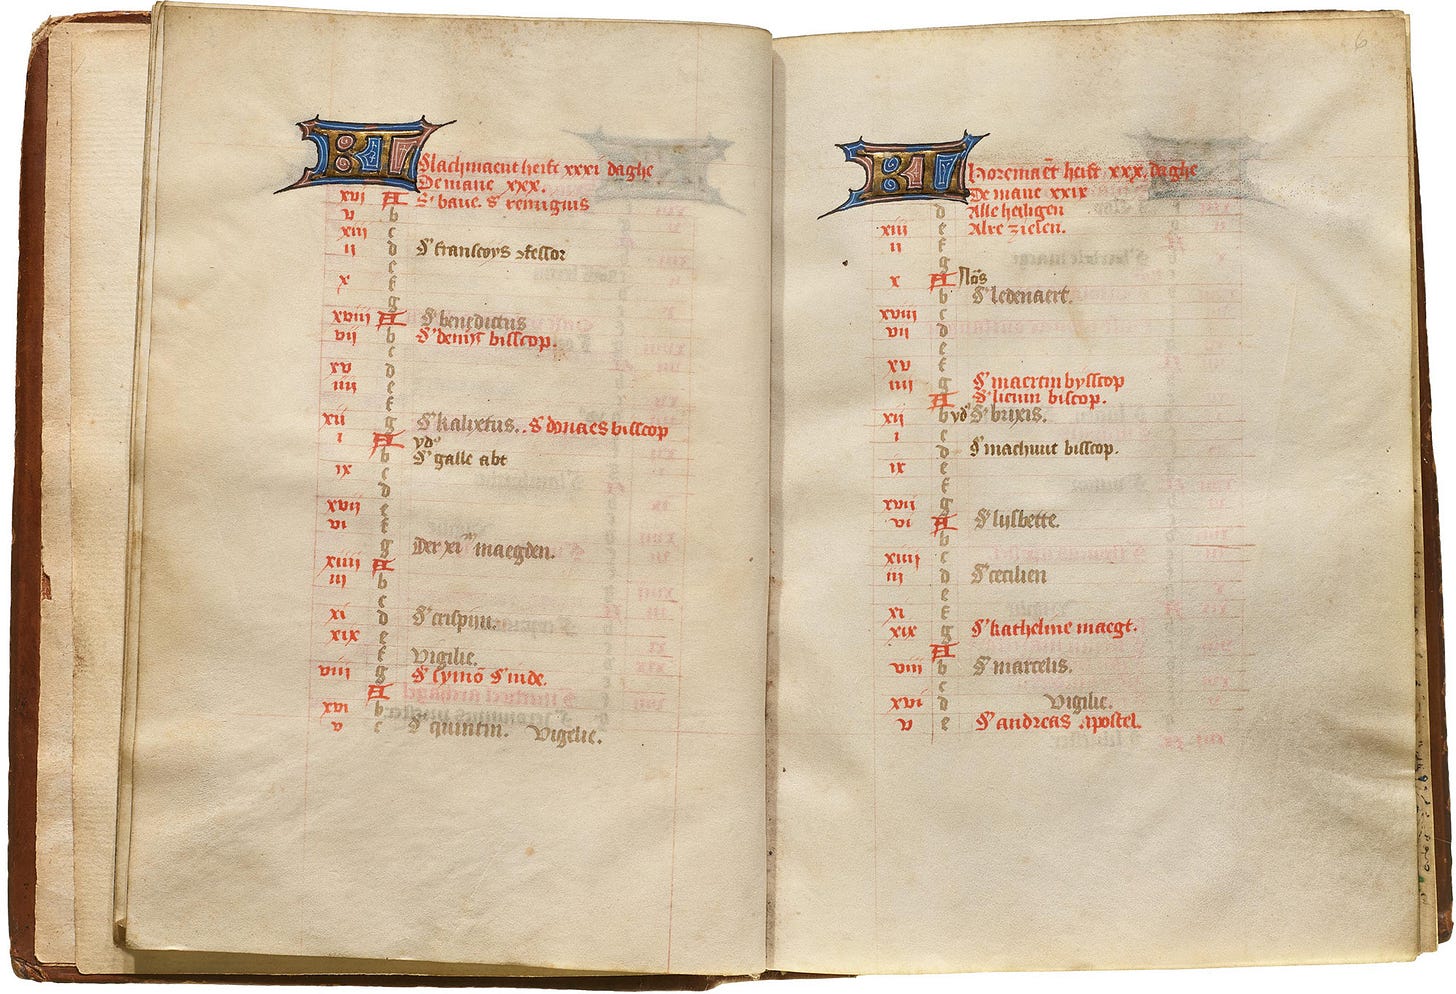 KL Slachmaent heift xxxi daghe
De mane xxx.
xvi A S' baue. S remigius
v b
xiii c
ii d S' franscoys gfessor
e
x f
g
xviii A S' benedictus
vii b S' denijs bisscop.
c
xv d
iiii e
f
xii g S' kalixtus. S donaes bisscop
i A yd'
b S' galle abt
ix c
d
xvii e
vi f
g Der xi maegden.
xiiii A
iii b
c
xi d S' crispijn.
xix e
f Vigilie.
viii g S' symoen S' iude.
A
xvi b
v c S' quintin. Vigelie.
6
KL Horemaent heift xxx. daghe
De mane xxix
d Alle heiligen
xiii e Alre zielen.
ii f
g
x A Nos
b S' ledenaert.
xviii c
vii d
e
xv f
iiii g S' maertin bysscop
A S' lieuin biscop.
xii b yd' S' brixis.
i c
d S' machuut bisscop.
ix e
f
xvii g
vi A S' lysbette.
b
xiiii c
iii d S' cecilien
e
xi f
xix g S' katheline maegt.
A
viii b S' marcelis.
c
xvi d Vigilie.
v e S' andreas apostel.